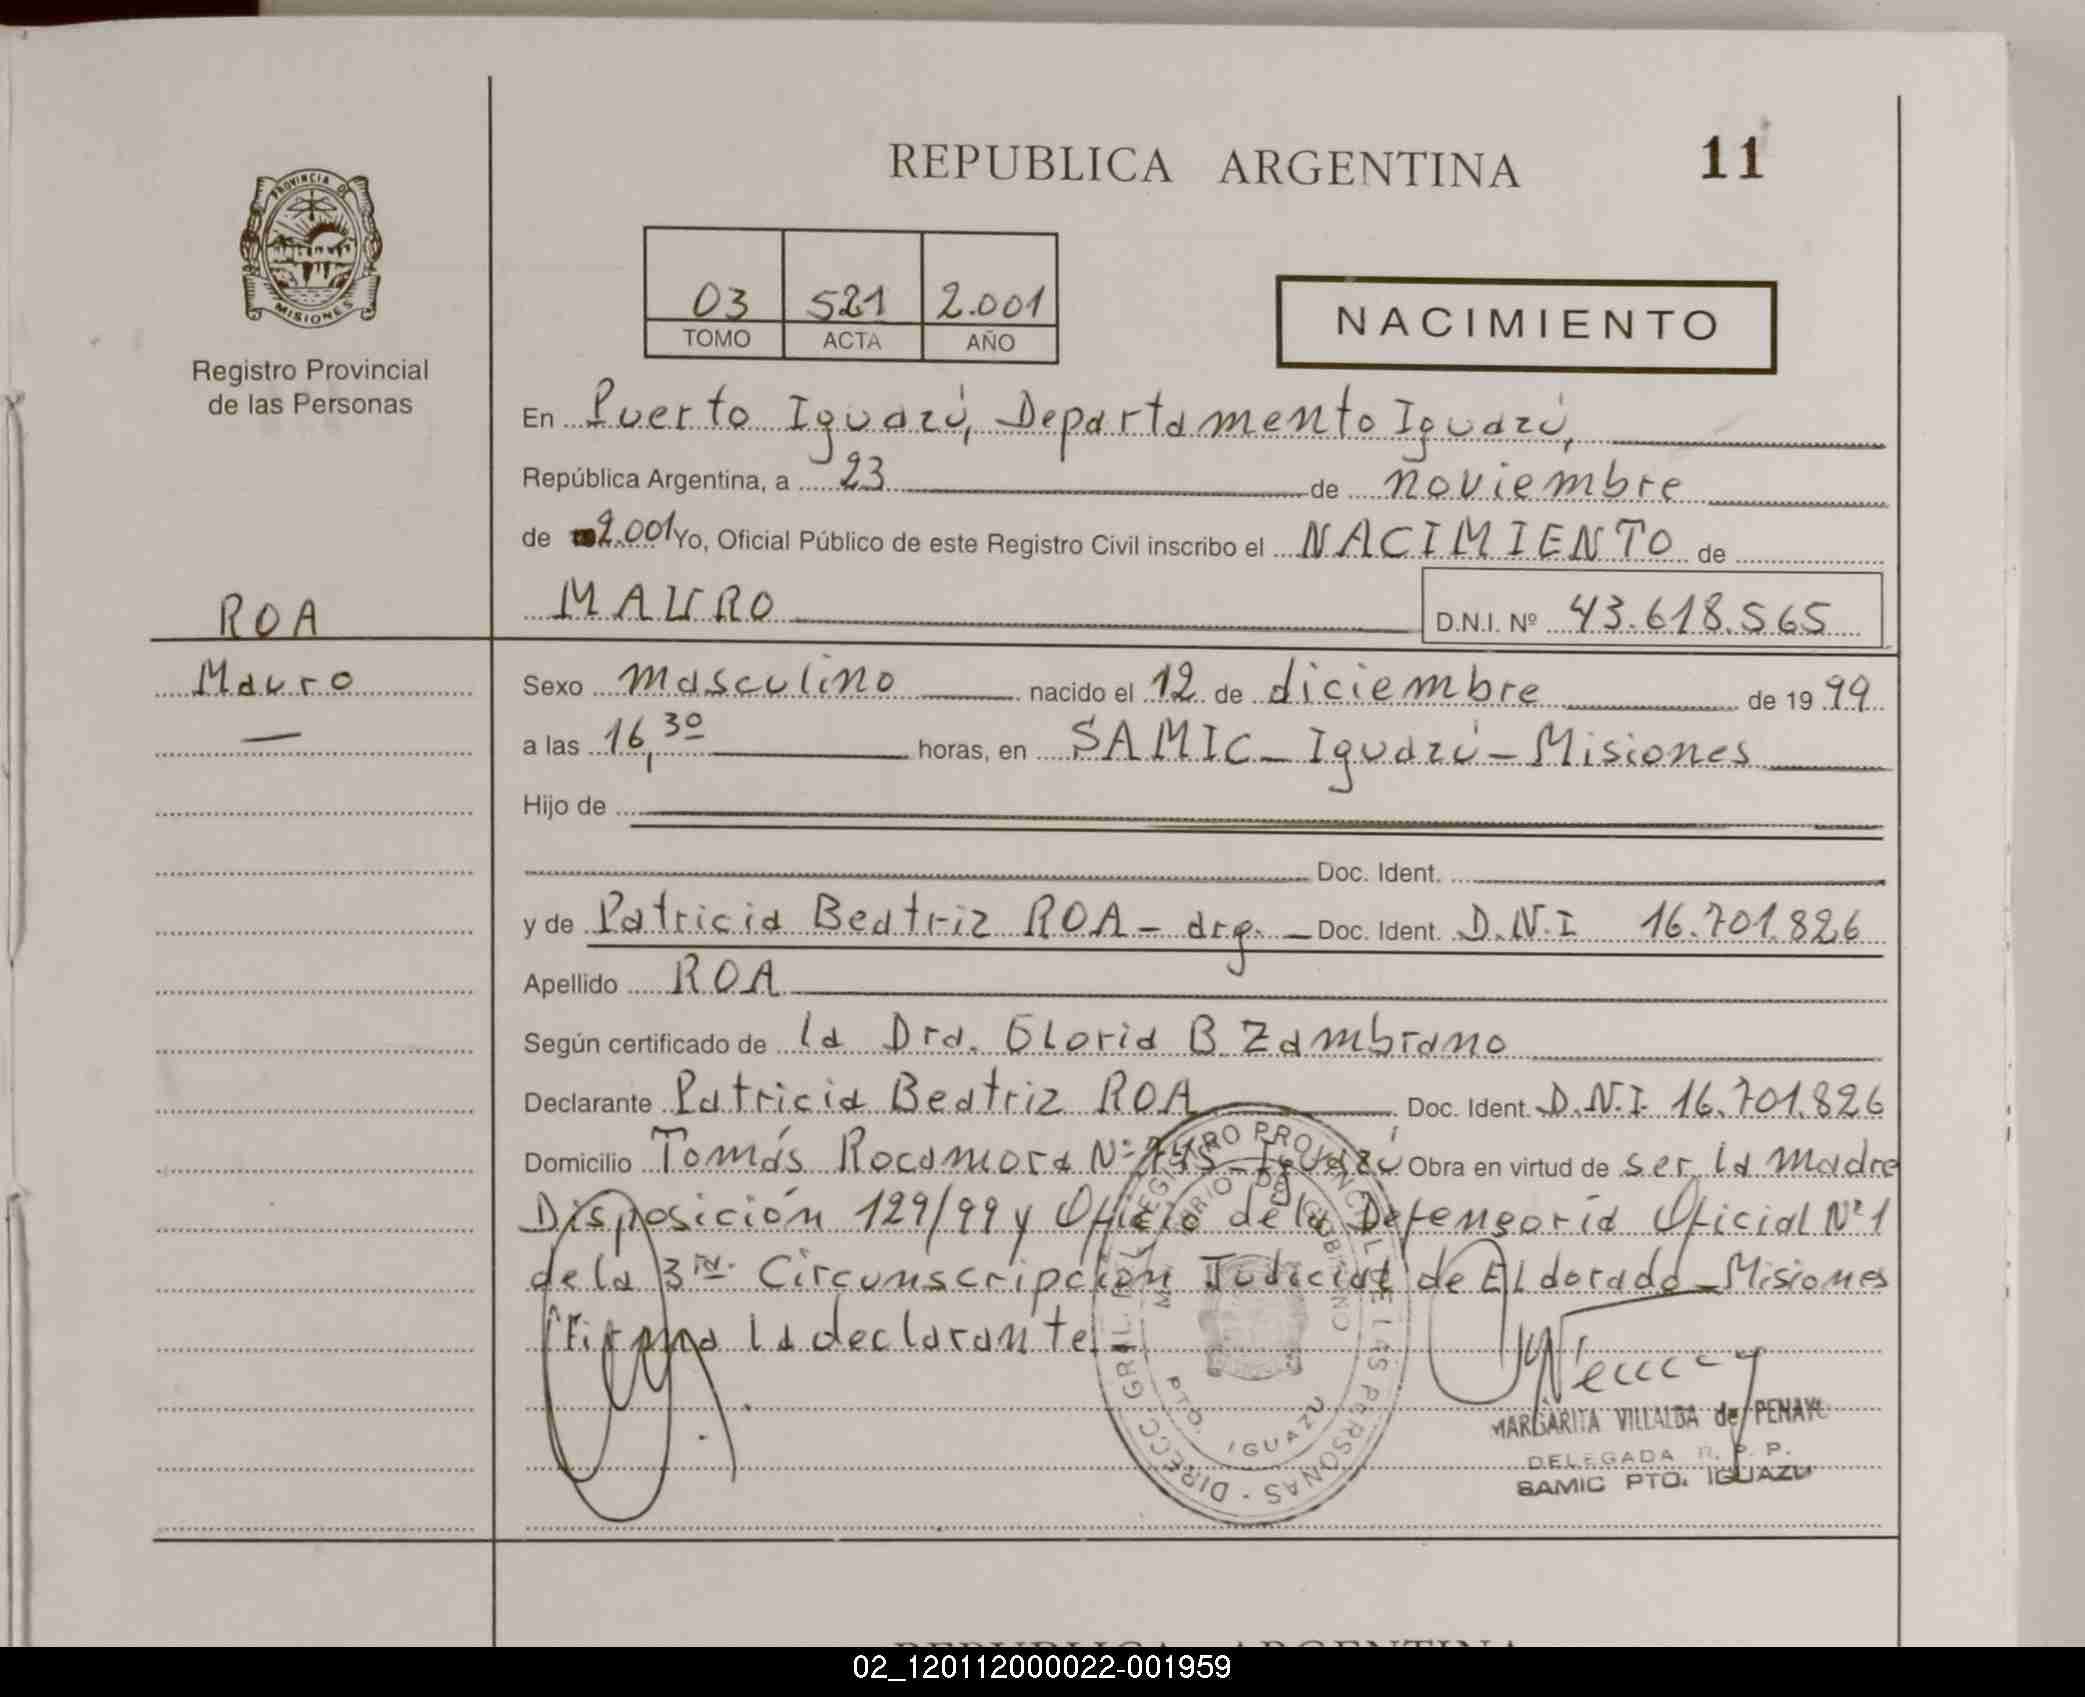 REPUBLICA ARGENTINA
11
PROVINCIA DE
MISIONES
Registro Provincial
de las Personas
03 521 2.001
TOMO ACTA AÑO
NACIMIENTO
En Puerto Iguazú, Departamento Iguazú,
República Argentina, a 23 de noviembre
de 2.001 Yo, Oficial Público de este Registro Civil inscribo el NACIMIENTO de
MAURO D.N.I. Nº 43.618.565
ROA
Mauro
Sexo masculino nacido el 12 de diciembre de 19 99
a las 16,30 horas, en SAMIC - Iguazú - Misiones
Hijo de
Doc. Ident.
y de Patricia Beatriz ROA - arg. - Doc. Ident. D.N.I 16.701.826
Apellido ROA
Según certificado de la Dra. Gloria B Zambrano
Declarante Patricia Beatriz ROA Doc. Ident. D.N.I. 16.701.826
Domicilio Tomás Rocamora Nº Iguazú Obra en virtud de ser la madre
Disposición 129/99 y Oficio de la Defensoría Oficial Nº 1
de la 3ra. Circunscripción Judicial de Eldorado - Misiones
Firma la declarante.
DIRECC. GRAL. DEL REGISTRO PROVINCIAL DE LAS PERSONAS -
MINISTERIO DE GOBIERNO
PTO. IGUAZU
MARGARITA VILLALBA de PENAYO
DELEGADA R. P. P.
SAMIC PTO. IGUAZU
REPUBLICA ARGENTINA
02_120112000022-001959